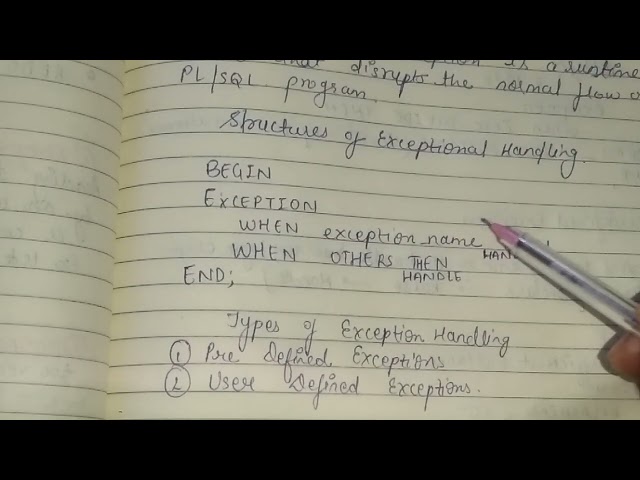 is a runtime
disrupts the normal flow o
PL/SQL program.
Structures of Exceptional Handling.
BEGIN
EXCEPTION
WHEN exception_name
WHEN OTHERS THEN
HANDLE
END;
Types of Exception Handling
① Pre Defined Exceptions
② User Defined Exceptions.